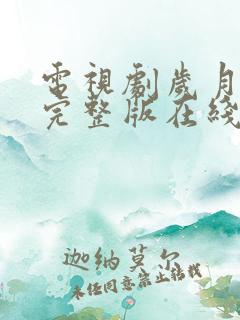 電視劇歲月
完整版在綫
迦纳莫尔
未经同意禁止转载